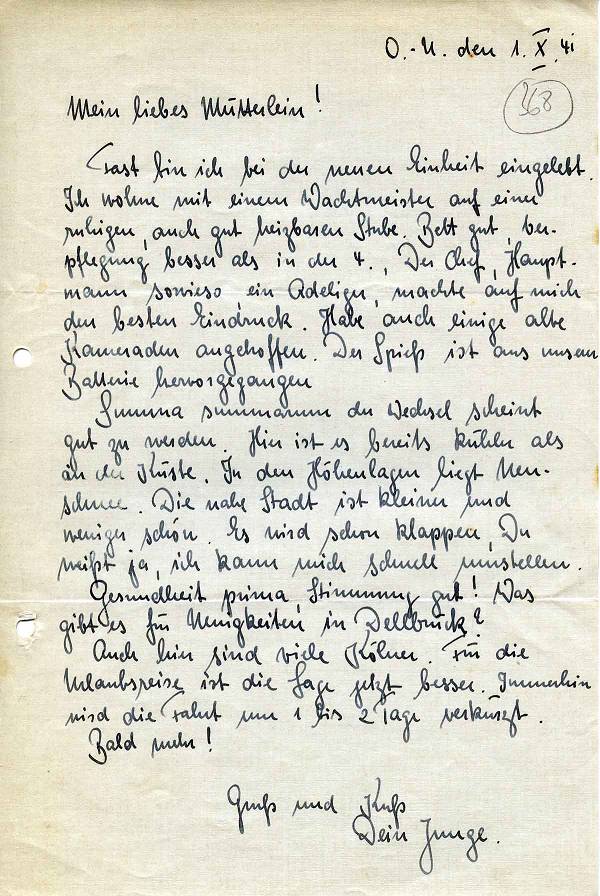 O.-U. den 1. X. 41
368
Mein liebes Mütterlein!
Fast bin ich bei der neuen Einheit eingelebt.
Ich wohne mit einem Wachtmeister auf einer
ruhigen, auch gut heizbaren Stube. Bett gut, Ver-
pflegung besser als in der 4., Der Chef, Haupt-
mann sowieso, ein Adeliger, machte auf mich
den besten Eindruck. Habe auch einige alte
Kameraden angetroffen. Der Spieß ist aus unserer
Batterie hervorgegangen
Summa summarum der Wechsel scheint
gut zu werden. Hier ist es bereits kühler als
an der Küste. In den Höhenlagen liegt Neu-
schnee. Die nahe Stadt ist kleiner und
weniger schön. Es wird schon klappen, Du
weißt ja, ich kann mich schnell umstellen.
Gesundheit prima, Stimmung gut! Was
gibt es für Neuigkeiten in Dellbrück?
Auch hier sind viele Kölner. Für die
Urlaubsreise ist die Lage jetzt besser. Immerhin
wird die Fahrt um 1 bis 2 Tage verkürzt.
Bald mehr!
Gruß und Kuß
Dein Junge.